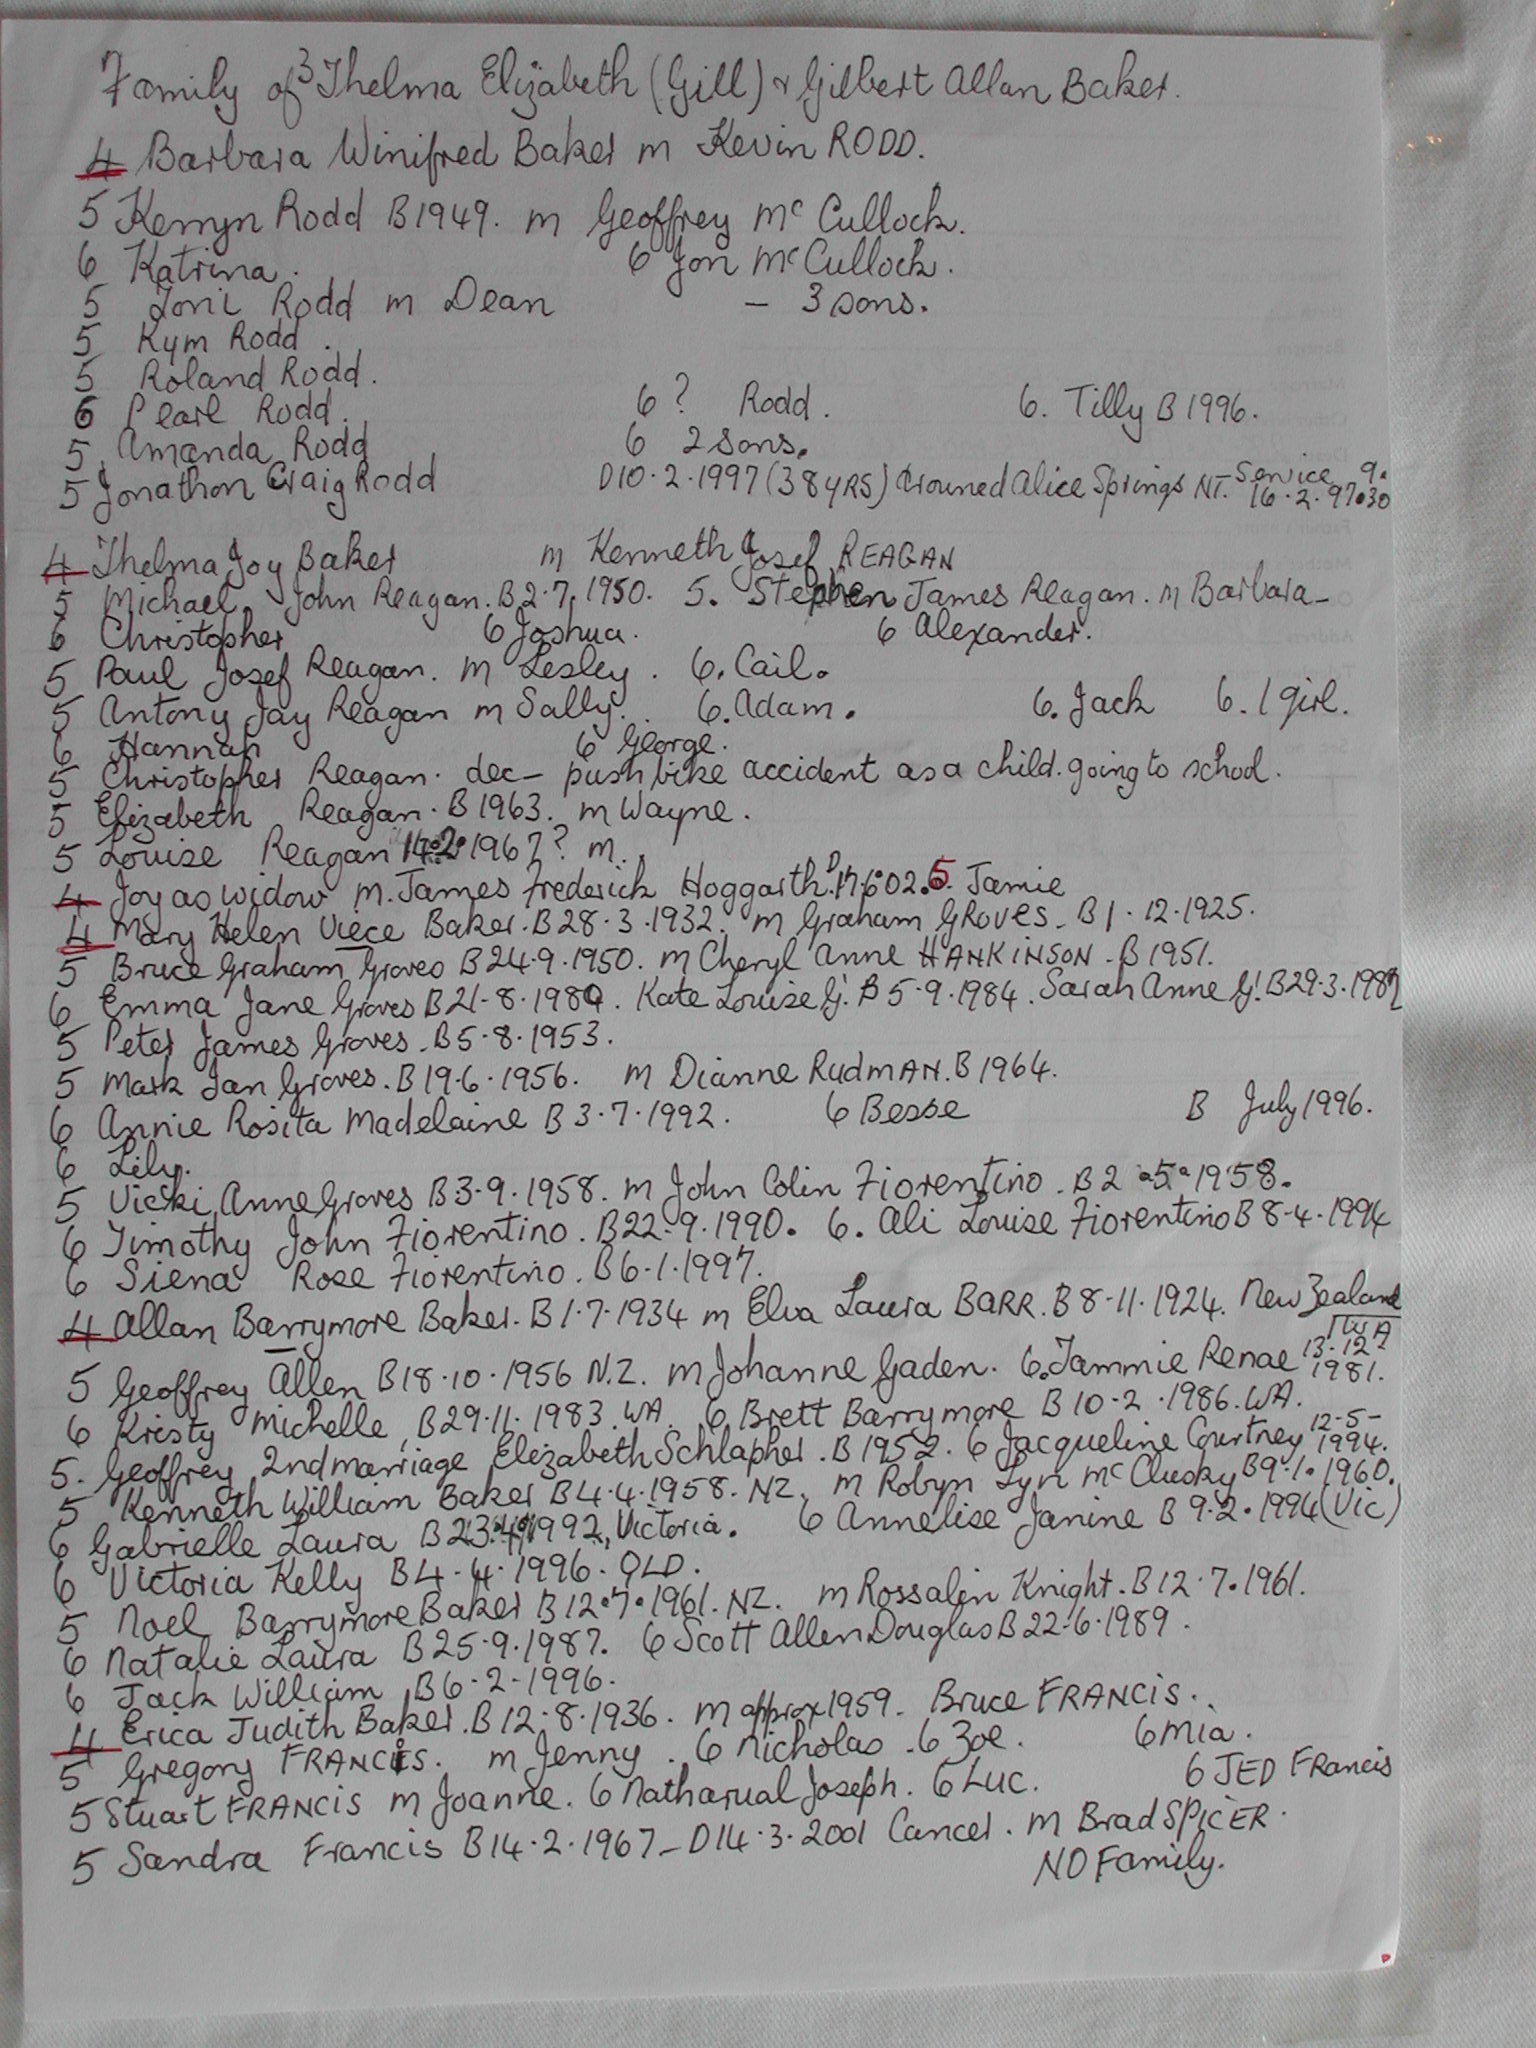 Family of 3 Thelma Elizabeth (Gill) & Gilbert Allan Baker.
4 Barbara Winifred Baker m Kevin RODD.
5 Kerryn Rodd B1949. m Geoffrey Mc Cullock.
6 Katrina. 6 Jon McCullock.
5 Toni Rodd m Dean – 3 sons.
5 Kym Rodd.
5 Roland Rodd.
6 Pearl Rodd. 6 ? Rodd. 6. Tilly B 1996.
5 Amanda Rodd 6 2 sons.
5 Jonathon Craig Rodd D10.2.1997 (38 YRS) Drowned Alice Springs NT. Service 9.30 16.2.97
4 Thelma Joy Baker m Kenneth Josef REAGAN
5 Michael John Reagan. B2.7.1950. 5. Stephen James Reagan. m Barbara –
6 Christopher 6 Joshua. 6 Alexander.
5 Paul Josef Reagan. m Lesley. 6. Cail.
5 Antony Jay Reagan m Sally. 6. Adam. 6. Jack 6. 1 girl.
6 Hannah 6 George.
5 Christopher Reagan. dec – push bike accident as a child. going to school.
5 Elizabeth Reagan. B 1963. m Wayne.
5 Louise Reagan 1967? m.
4 Joy as widow m. James Frederick Hoggarth. D17.6.02. 5. Jamie
4 Mary Helen Viece Baker. B28.3.1932. m Graham GROVES – B1.12.1925.
5 Bruce Graham Groves B24.9.1950. m Cheryl Anne HANKINSON – B 1951.
6 Emma Jane Groves B21.8.1980. Kate Louise G. B 5.9.1984. Sarah Anne G. B29.3.1987
5 Peter James Groves. B5.8.1953.
5 Mark Ian Groves. B19.6.1956. m Dianne RUDMAN. B 1964.
6 Annie Rosita Madelaine B 3.7.1992. 6 Besse B July 1996.
6 Lily.
5 Vicki Anne Groves B3.9.1958. m John Colin Fiorentino. B2.5.1958.
6 Timothy John Fiorentino. B22.9.1990. 6. Ali Louise Fiorentino B 8.4.1994
6 Siena Rose Fiorentino. B6.1.1997.
4 Allan Barrymore Baker. B1.7.1934 m Elva Laura BARR. B 8.11.1924. New Zealand
5 Geoffrey Allen B18.10.1956 N.Z. m Johanne Gaden. 6. Tammie Renae 13.12 1981. WA
6 Kristy Michelle, B29.11.1983. WA. 6 Brett Barrymore B 10.2.1986. WA.
5. Geoffrey 2nd marriage Elizabeth Schlapher. B 1952. 6 Jacqueline Courtney 12-5-1994.
5 Kenneth William Baker B4.4.1958. NZ. m Robyn Lyn McClusky B9.1.1960.
6 Gabrielle Laura B23.4.1992, Victoria. 6 Annelise Janine B 9.2.1994 (Vic)
6 Victoria Kelly B4.4.1996. QLD.
5 Noel Barrymore Baker B12.7.1961. NZ. m Rossalin Knight. B12.7.1961.
6 Natalie Laura B25.9.1987. 6 Scott Allen Douglas B 22-6.1989.
6 Jack William B6-2-1996.
4 Erica Judith Baker. B12.8.1936. m approx 1959. Bruce FRANCIS.
5 Gregory FRANCIS. m Jenny. 6 Nicholas. 6 Zoe. 6 Mia.
5 Stuart FRANCIS m Joanne. 6 Natharual Joseph. 6 Luc. 6 JED Francis
5 Sandra Francis B14.2.1967 – D14.3.2001 Cancer. m Brad SPICER.
NO Family.